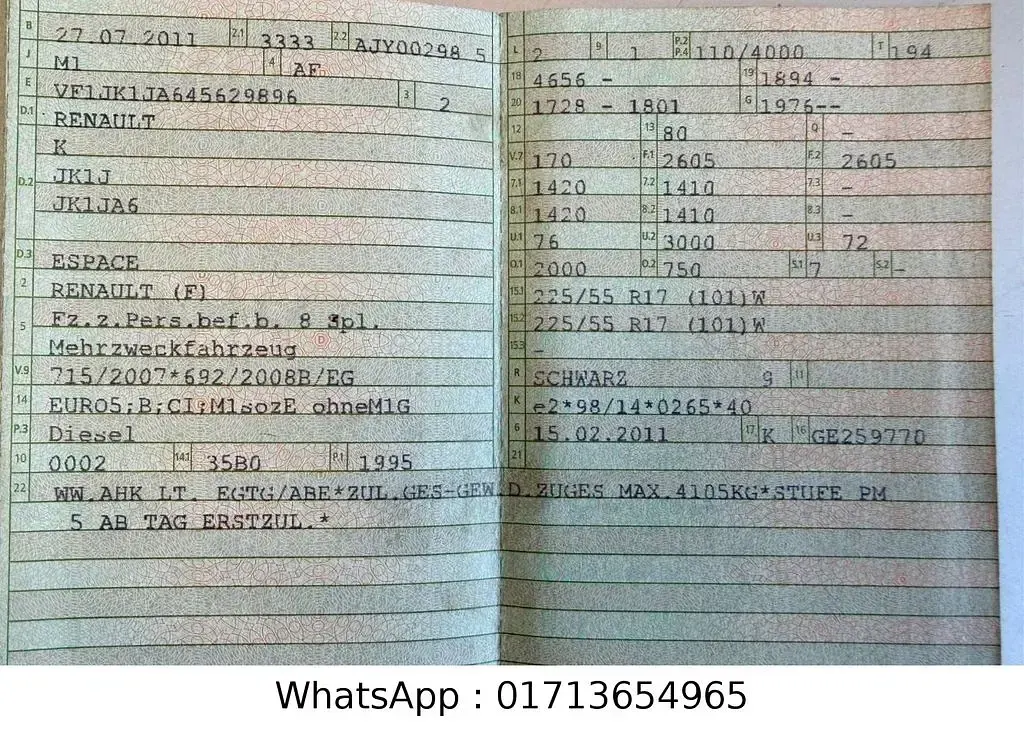 B 27.07.2011 2.1 3333 2.2 AJY00298 5
J M1 4 AF
E VF1JK1JA645629896 3 2
D.1 RENAULT
K
D.2 JK1J
JK1JA6
D.3 ESPACE
2 RENAULT (F)
5 Fz.z.Pers.bef.b. 8 Spl.
Mehrzweckfahrzeug
V.9 715/2007*692/2008B/EG
14 EURO5;B;CI;M1sozE ohneM1G
P.3 Diesel
10 0002 14.1 35B0 P.1 1995
L 2 9 1 P.2 P.4 110/4000 T 194
18 4656 - 19 1894 -
20 1728 - 1801 G 1976--
12 13 80 Q -
V.7 170 F.1 2605 F.2 2605
7.1 1420 7.2 1410 7.3 -
8.1 1420 8.2 1410 8.3 -
U.1 76 U.2 3000 U.3 72
O.1 2000 O.2 750 S.1 7 S.2 -
15.1 225/55 R17 (101)W
15.2 225/55 R17 (101)W
15.3 -
R SCHWARZ 9 11
K e2*98/14*0265*40
6 15.02.2011 17 K 16 GE259770
21
22 WW.AHK LT. EGTG/ABE*ZUL.GES-GEW.D.ZUGES MAX.4105KG*STUFE PM
5 AB TAG ERSTZUL.*
WhatsApp : 01713654965